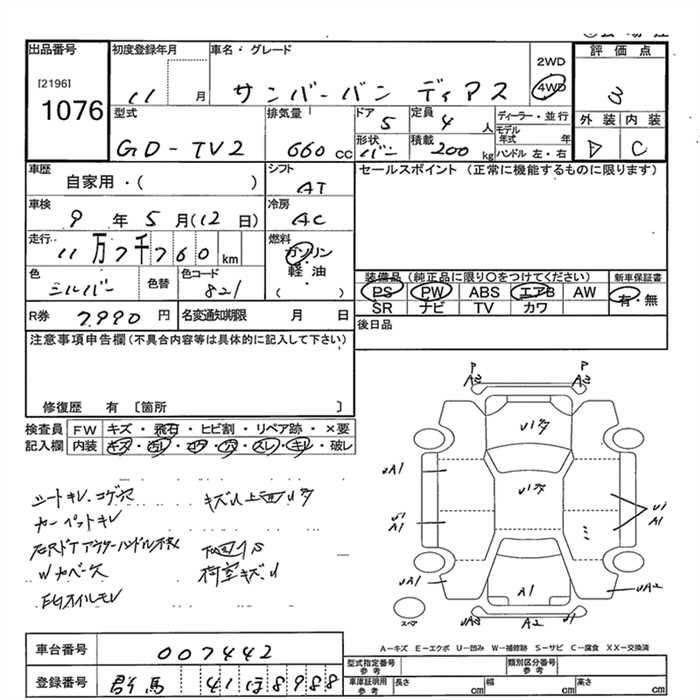 出品番号
[2196]
1076
初度登録年月
11 月
車名・グレード
サンバーバン ディアス
2WD
4WD
評価点
3
型式
GD-TV2
排気量
660 cc
ドア
5
定員
4 人
ディーラー・並行
モデル年式 年
ハンドル 左・右
形状
バン
積載
200 kg
外装 内装
D C
車歴
自家用・( )
シフト
AT
セールスポイント (正常に機能するものに限ります)
車検
9 年 5 月 (12 日)
冷房
AC
走行
11万7千760 km
燃料
ガソリン
軽油
( )
色
シルバー
色替
色コード
821
装備品 (純正品に限り〇をつけてください)
新車保証書
PS PW ABS エアB AW
有・無
SR ナビ TV カワ
R券 7,990 円
名変通知期限 月 日
後日品
注意事項申告欄 (不具合内容等は具体的に記入して下さい)
修復歴 有 〔箇所 〕
検査員記入欄
FW キズ・飛石・ヒビ割・リペア跡・×要
内装 キズ・汚レ・コゲ・穴・スレ・キレ・破レ
シートキレ、コゲ穴
カーペットキレ
Wカバー欠
EGオイルモレ
荷室キズU
P A3
P A3
A1
U1
A1
U1
A1
A1
A2
A2
U1
スペア
A-キズ E-エクボ U-凹み W-補修跡 S-サビ C-腐食 XX-交換済
車台番号 007442
登録番号 群馬 41 ほ 8988
型式指定番号参考
類別区分番号参考
車庫証明用参考 長さ cm 幅 cm 高さ cm